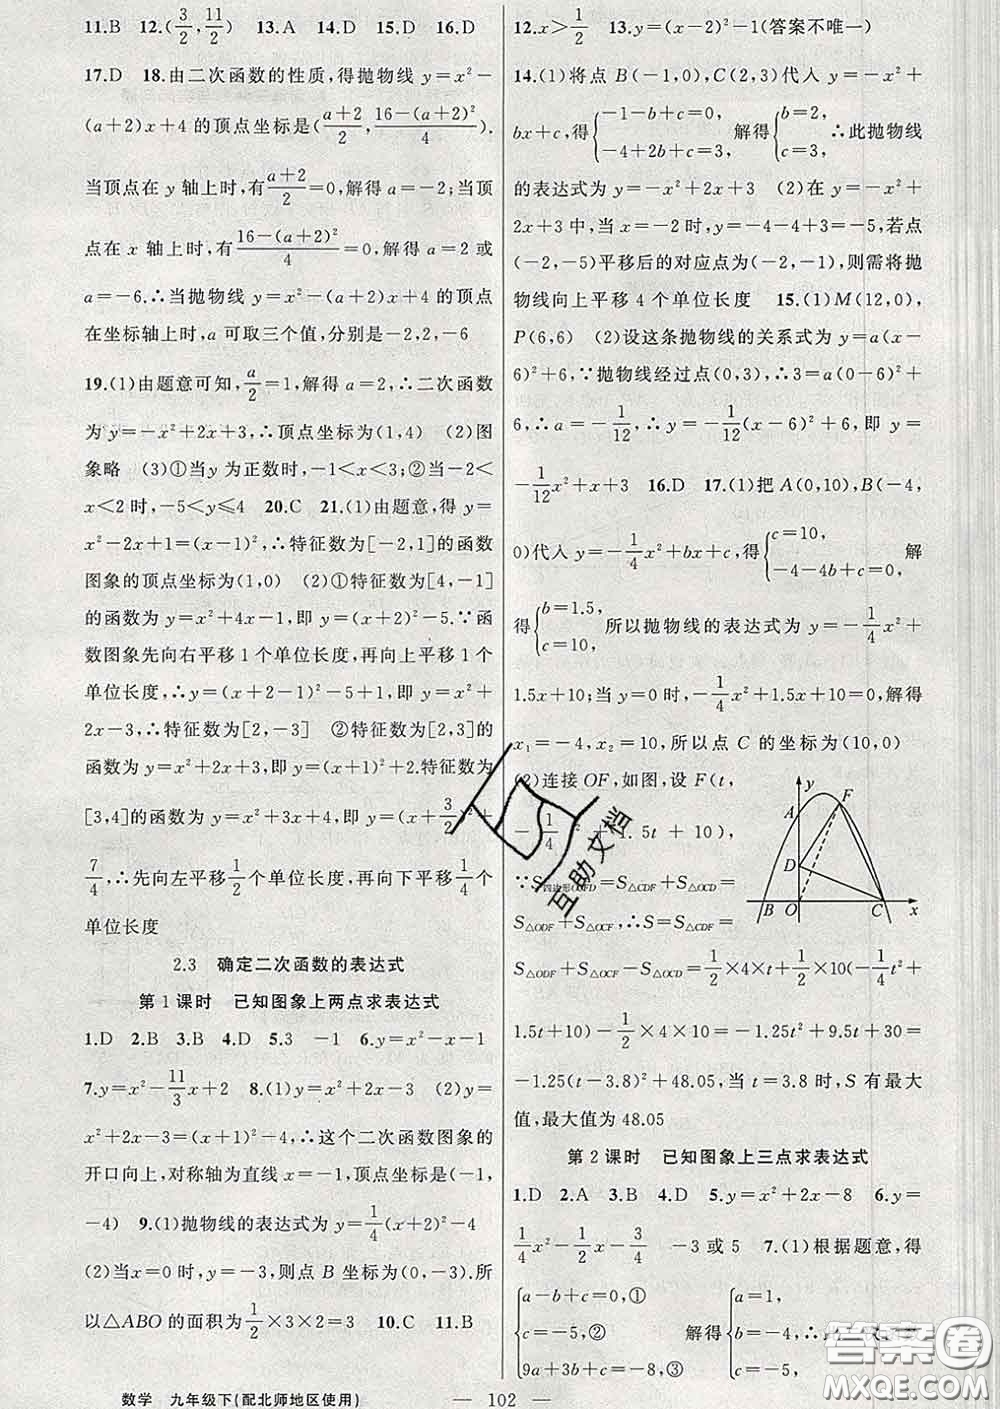 11.B　12.(3/2, 11/2)　13.A　14.D　15.D　16.D
17.D　18.由二次函数的性质,得抛物线 y=x²-
(a+2)x+4 的顶点坐标是((a+2)/2, (16-(a+2)²)/4).
当顶点在 y 轴上时,有(a+2)/2=0,解得 a=-2;当顶
点在 x 轴上时,有(16-(a+2)²)/4=0,解得 a=2 或
a=-6.∴当抛物线 y=x²-(a+2)x+4 的顶点
在坐标轴上时,a 可取三个值,分别是-2,2,-6
19.(1)由题意可知,a/2=1,解得 a=2,∴二次函数
为 y=-x²+2x+3,∴顶点坐标为(1,4)　(2)图
象略　(3)①当y 为正数时,-1<x<3;②当-2<
x<2 时,-5<y≤4　20.C　21.(1)由题意,得 y=
x²-2x+1=(x-1)²,∴特征数为[-2,1]的函数
图象的顶点坐标为(1,0)　(2)①特征数为[4,-1]
的函数为 y=x²+4x-1,即 y=(x+2)²-5.∵函
数图象先向右平移 1 个单位长度,再向上平移 1 个
单位长度,∴y=(x+2-1)²-5+1,即 y=x²+
2x-3,∴特征数为[2,-3]　②特征数为[2,3]的
函数为 y=x²+2x+3,即 y=(x+1)²+2.特征数为
[3,4]的函数为 y=x²+3x+4,即 y=(x+3/2)²+
7/4,∴先向左平移1/2个单位长度,再向下平移1/4个
单位长度
2.3　确定二次函数的表达式
第 1 课时　已知图象上两点求表达式
1.D　2.B　3.B　4.D　5.3　-1　6.y=x²-x-1
7.y=x²-11/3x+2　8.(1)y=x²+2x-3　(2)y=
x²+2x-3=(x+1)²-4,∴这个二次函数图象的
开口向上,对称轴为直线 x=-1,顶点坐标为(-1,
-4)　9.(1)抛物线的表达式为 y=1/4(x+2)²-4
(2)当x=0 时,y=-3,则点 B 坐标为(0,-3).所
以△ABO 的面积为1/2×3×2=3　10.C　11.B
12.x>1/2　13.y=(x-2)²-1(答案不唯一)
14.(1)将点 B(-1,0),C(2,3)代入 y=-x²+
bx+c,得{-1-b+c=0, -4+2b+c=3, 解得{b=2, c=3, ∴此抛物线
的表达式为 y=-x²+2x+3　(2)在 y=-x²+
2x+3 中,当 x=-2 时,y=-4-4+3=-5,若点
(-2,-5)平移后的对应点为(-2,-1),则需将抛
物线向上平移 4 个单位长度　15.(1)M(12,0),
P(6,6)　(2)设这条抛物线的关系式为 y=a(x-
6)²+6,∵抛物线经过点(0,3),∴3=a(0-6)²+
6,∴a=-1/12,∴y=-1/12(x-6)²+6,即 y=
-1/12x²+x+3　16.D　17.(1)把 A(0,10),B(-4,
0)代入 y=-1/4x²+bx+c,得{c=10, -4-4b+c=0, 解
得{b=1.5, c=10, 所以抛物线的表达式为 y=-1/4x²+
1.5x+10;当 y=0 时,-1/4x²+1.5x+10=0,解得
x₁=-4,x₂=10,所以点 C 的坐标为(10,0)
(2)连接 OF,如图,设 F(t,
-1/4t²+1.5t+10),
∵S四边形OCFD=S△CDF+S△OCD=
S△ODF+S△OCF,∴S=S△CDF=
S△ODF+S△OCF-S△OCD=1/2×4×t+1/2×10×(-1/4t²+
1.5t+10)-1/2×4×10=-1.25t²+9.5t+30=
-1.25(t-3.8)²+48.05,当 t=3.8 时,S 有最大
值,最大值为 48.05
y
A
F
D
B
O
C
x
第 2 课时　已知图象上三点求表达式
1.D　2.A　3.B　4.D　5.y=x²+2x-8　6.y=
1/4x²-1/2x-3/4　-3 或 5　7.(1)根据题意,得
{a-b+c=0,① c=-5,② 9a+3b+c=-8,③ 解得{a=1, b=-4, c=-5,
数学　九年级下(配北师地区使用)
— 102 —
互助文档
答案圈
MXQE.COM